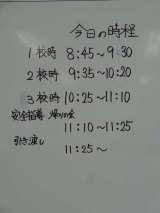 今日の時程
1校時 8:45～9:30
2校時 9:35～10:20
3校時 10:25～11:10
安全指導 帰りの会
11:10～11:25
引き渡し
11:25～